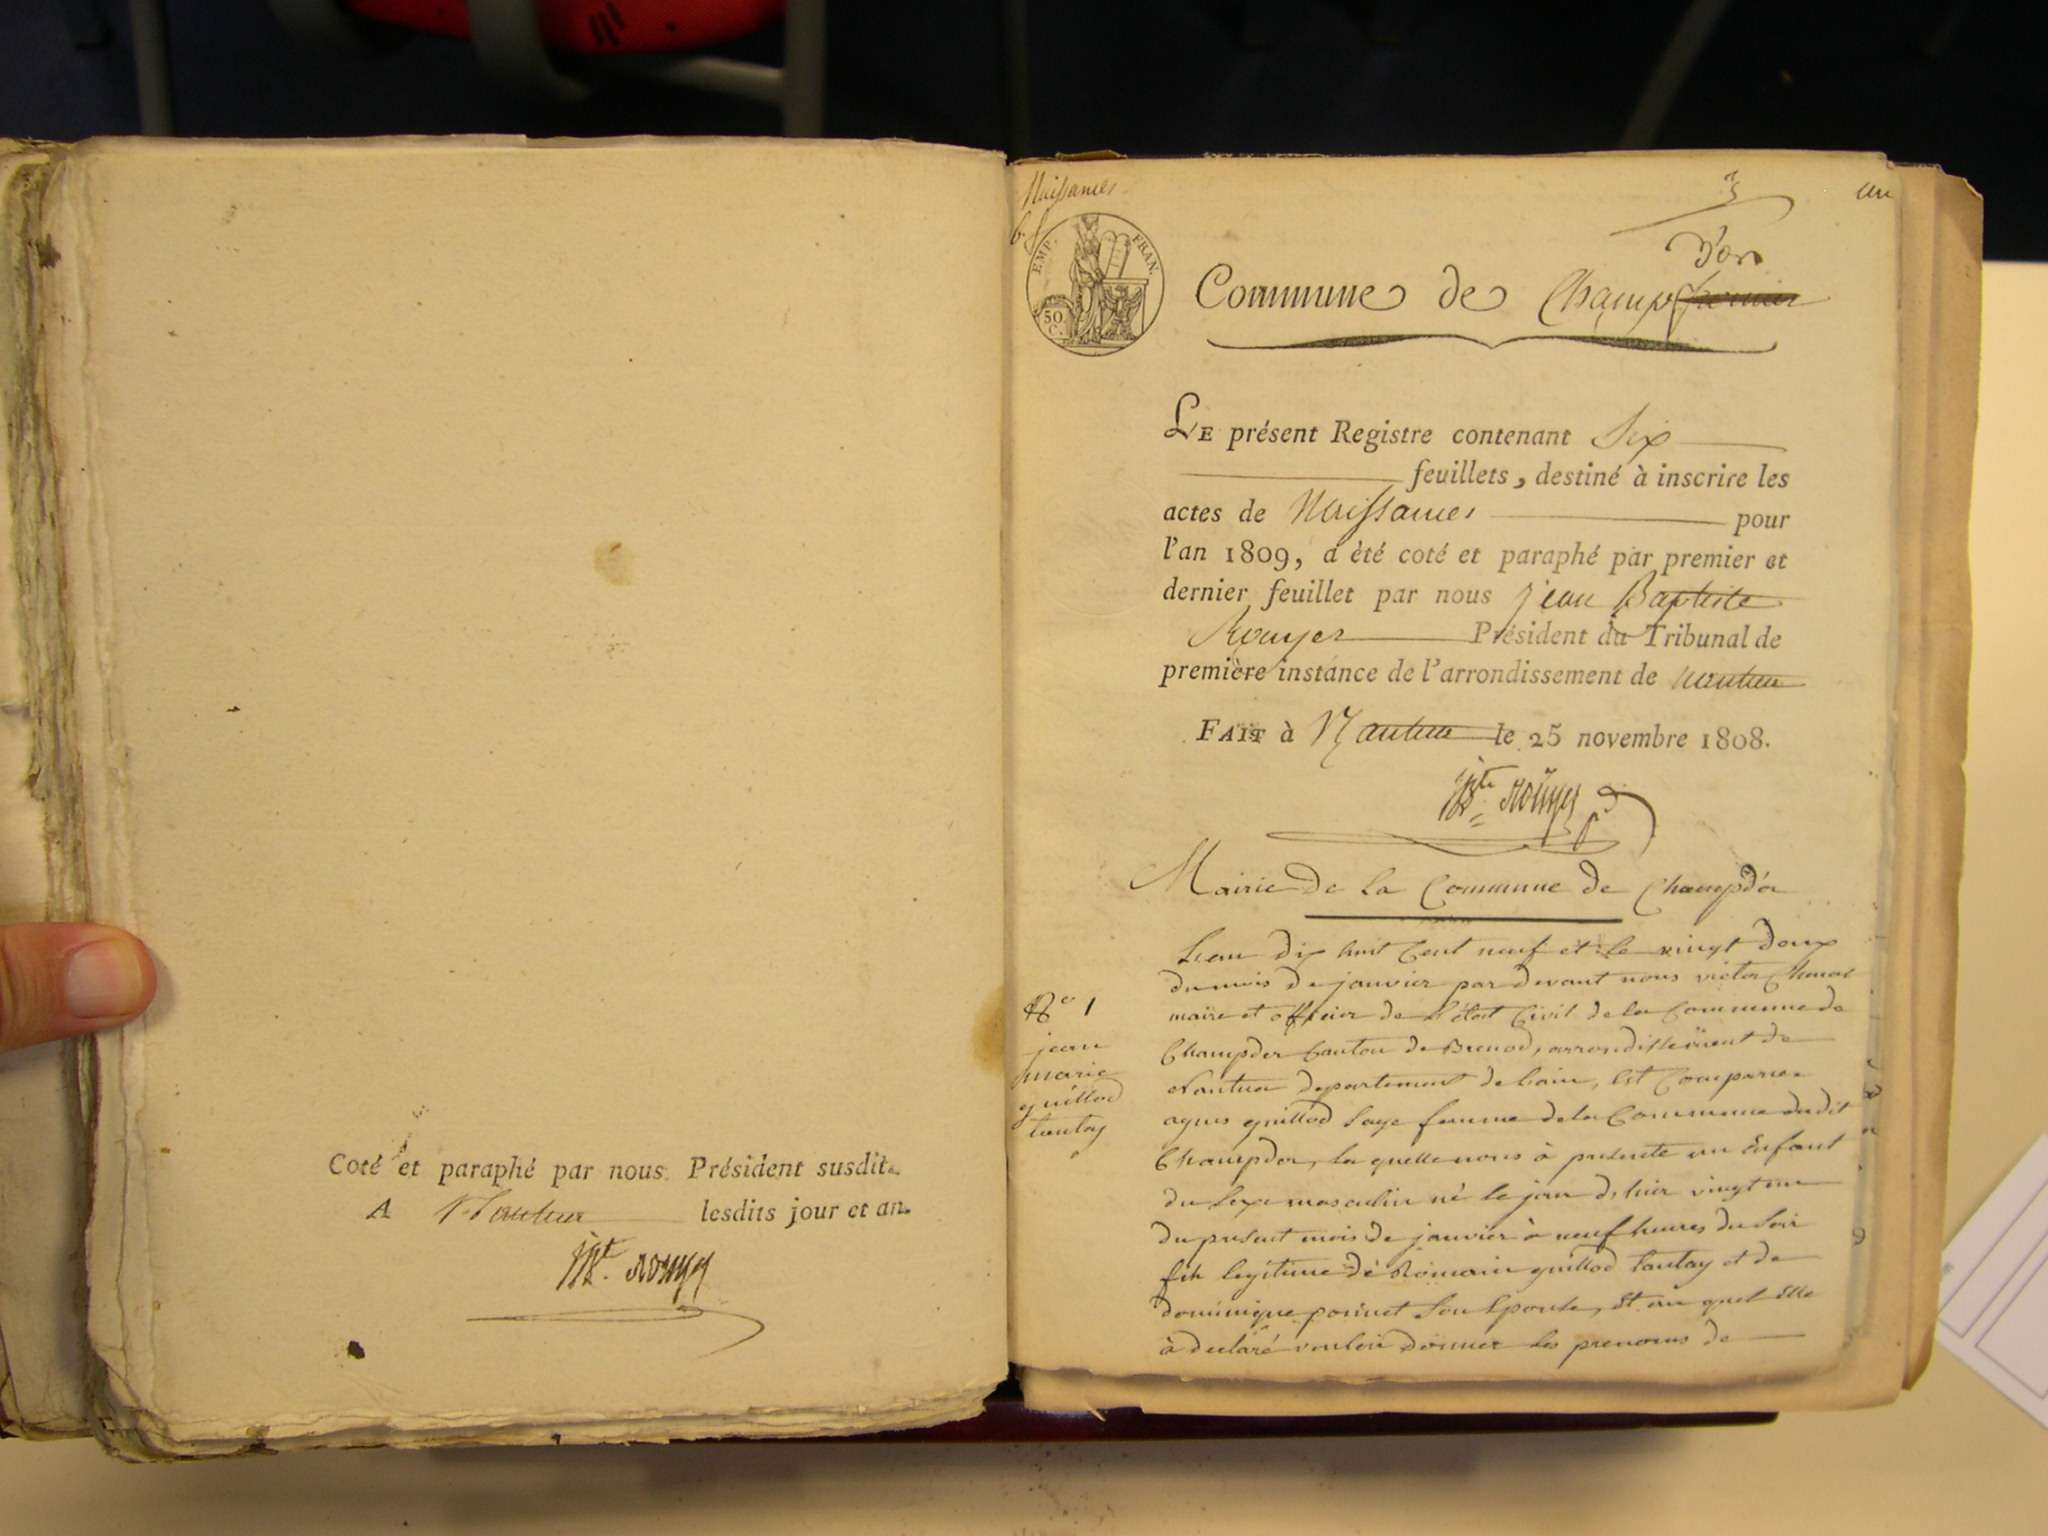 Coté et paraphé par nous Président susdit.
A Nantua lesdits jour et an.
Jn Bte Rouyer
Naissances
3
un
EMP. FRAN.
50 C.
d'or
Commune de Champfromier
LE présent Registre contenant Six
feuillets, destiné à inscrire les
actes de Naissances pour
l'an 1809, a èté coté et paraphé par premier et
dernier feuillet par nous jean Baptiste
Rouyer Président du Tribunal de
première instance de l'arrondissement de nantua
FAIT à Nantua le 25 novembre 1808.
Jn Bte Rouyer
Mairie de la Commune de Champd'or
L'an dix huit Cent neuf et le vingt deux
du mois de janvier par devant nous victor
maire et officier de l'état Civil de la Commune de
Champdor Canton de Brenod, arrondissement de
Nantua departement de l'ain, est Comparue
agnes guillod Sage femme de la Commune du dit
Champdor, la quelle nous à presenté un Enfant
du Sexe masculin né le jour d'hier vingt un
du present mois de janvier à neuf heures du Soir
fils legitime de Romain guillod tantay et de
dominique ponnet Son Epouse, Et au quel Elle
à declaré vouloir donner les prenoms de
No 1
jean
marie
guillod
tantay